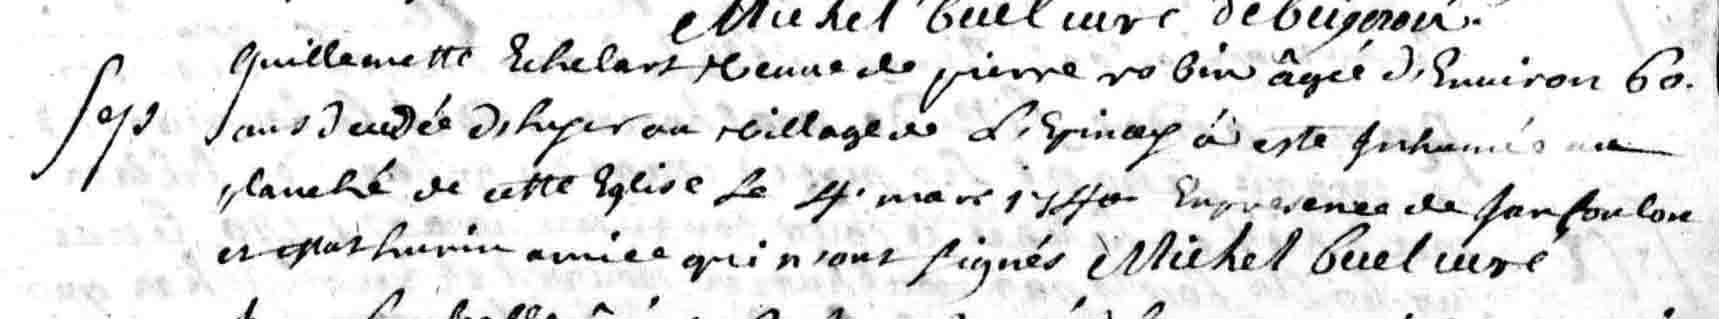 Michel Buel curé de
Guillemette Echelart veuve de pierre robin âgée d'Environ 60.
Sep ans décédée d'hyer au village de L'Epinay á este Inhumée au
planché de cette Eglise Le 4. mars 1740 En presence de Jan foulon
et Mathurin amice qui n'ont signés Michel Buel curé